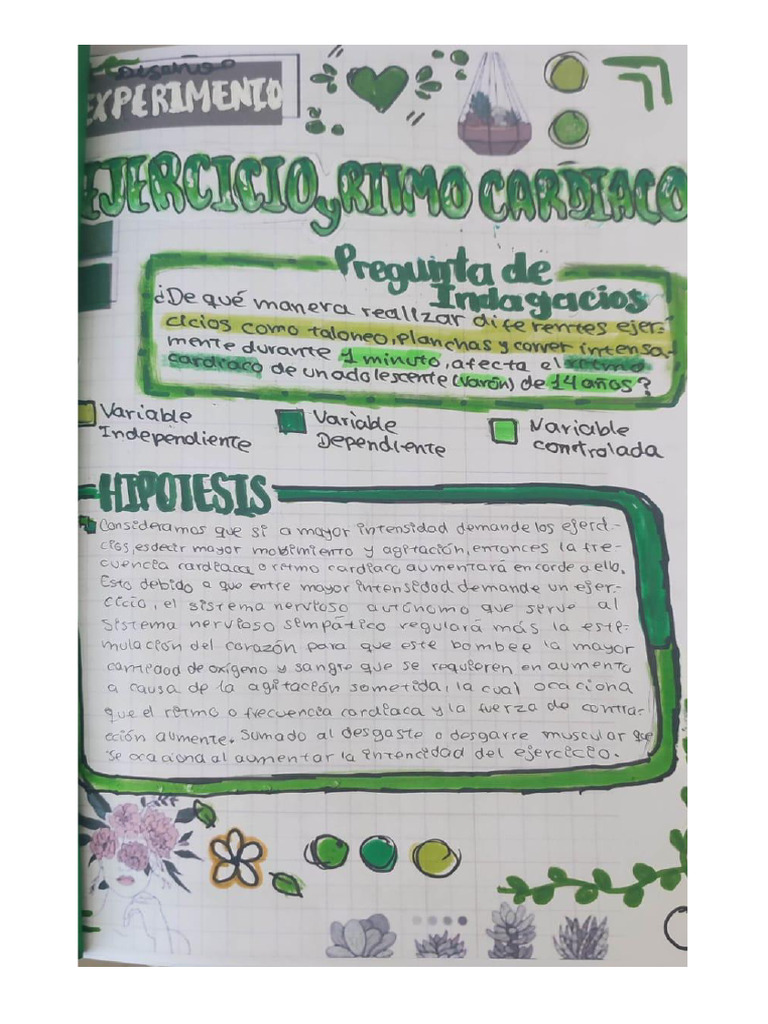 Diseño
EXPERIMENTO
EJERCICIO y RITMO CARDIACO
Pregunta de
Indagacios
¿De qué manera realizar diferentes ejer-
cicios como taloneo, planchas y correr intensa-
mente durante 1 minuto, afecta el ritmo
cardiaco de un adolescente (varón) de 14 años?
Variable
Independiente
Variable
Dependiente
Variable
controlada
HIPOTESIS
Consideramos que si a mayor intensidad demande los ejerci-
cios, es decir mayor mobimiento y agitación, entonces la fre-
cuencia cardiaca o ritmo cardiaco aumentará en corde a ello.
Esto debido a que entre mayor intensidad demande un ejer-
cicio, el sistema nervioso autónomo que serve al
sistema nervioso simpático regulará más la esti-
mulación del corazón para que este bombee la mayor
cantidad de oxígeno y sangre que se requieren en aumento
a causa de la agitación sometida, la cual ocaciona
que el ritmo o frecuencia cardiaca y la fuerza de contra-
acción aumente. Sumado al desgaste o desgarre muscular que
se ocaciona al aumentar la intencidad del ejercicio.